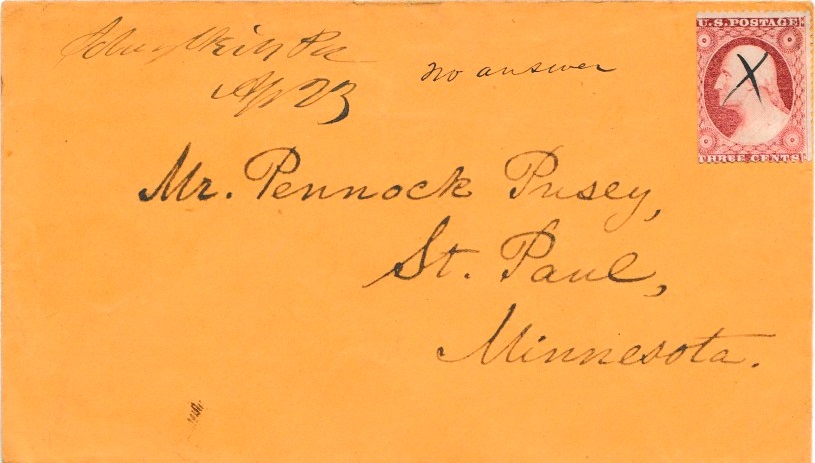 Pa
Ap 23
no answer
U.S. POSTAGE
X
THREE CENTS
Mr. Pennock Pusey,
St. Paul,
Minnesota.